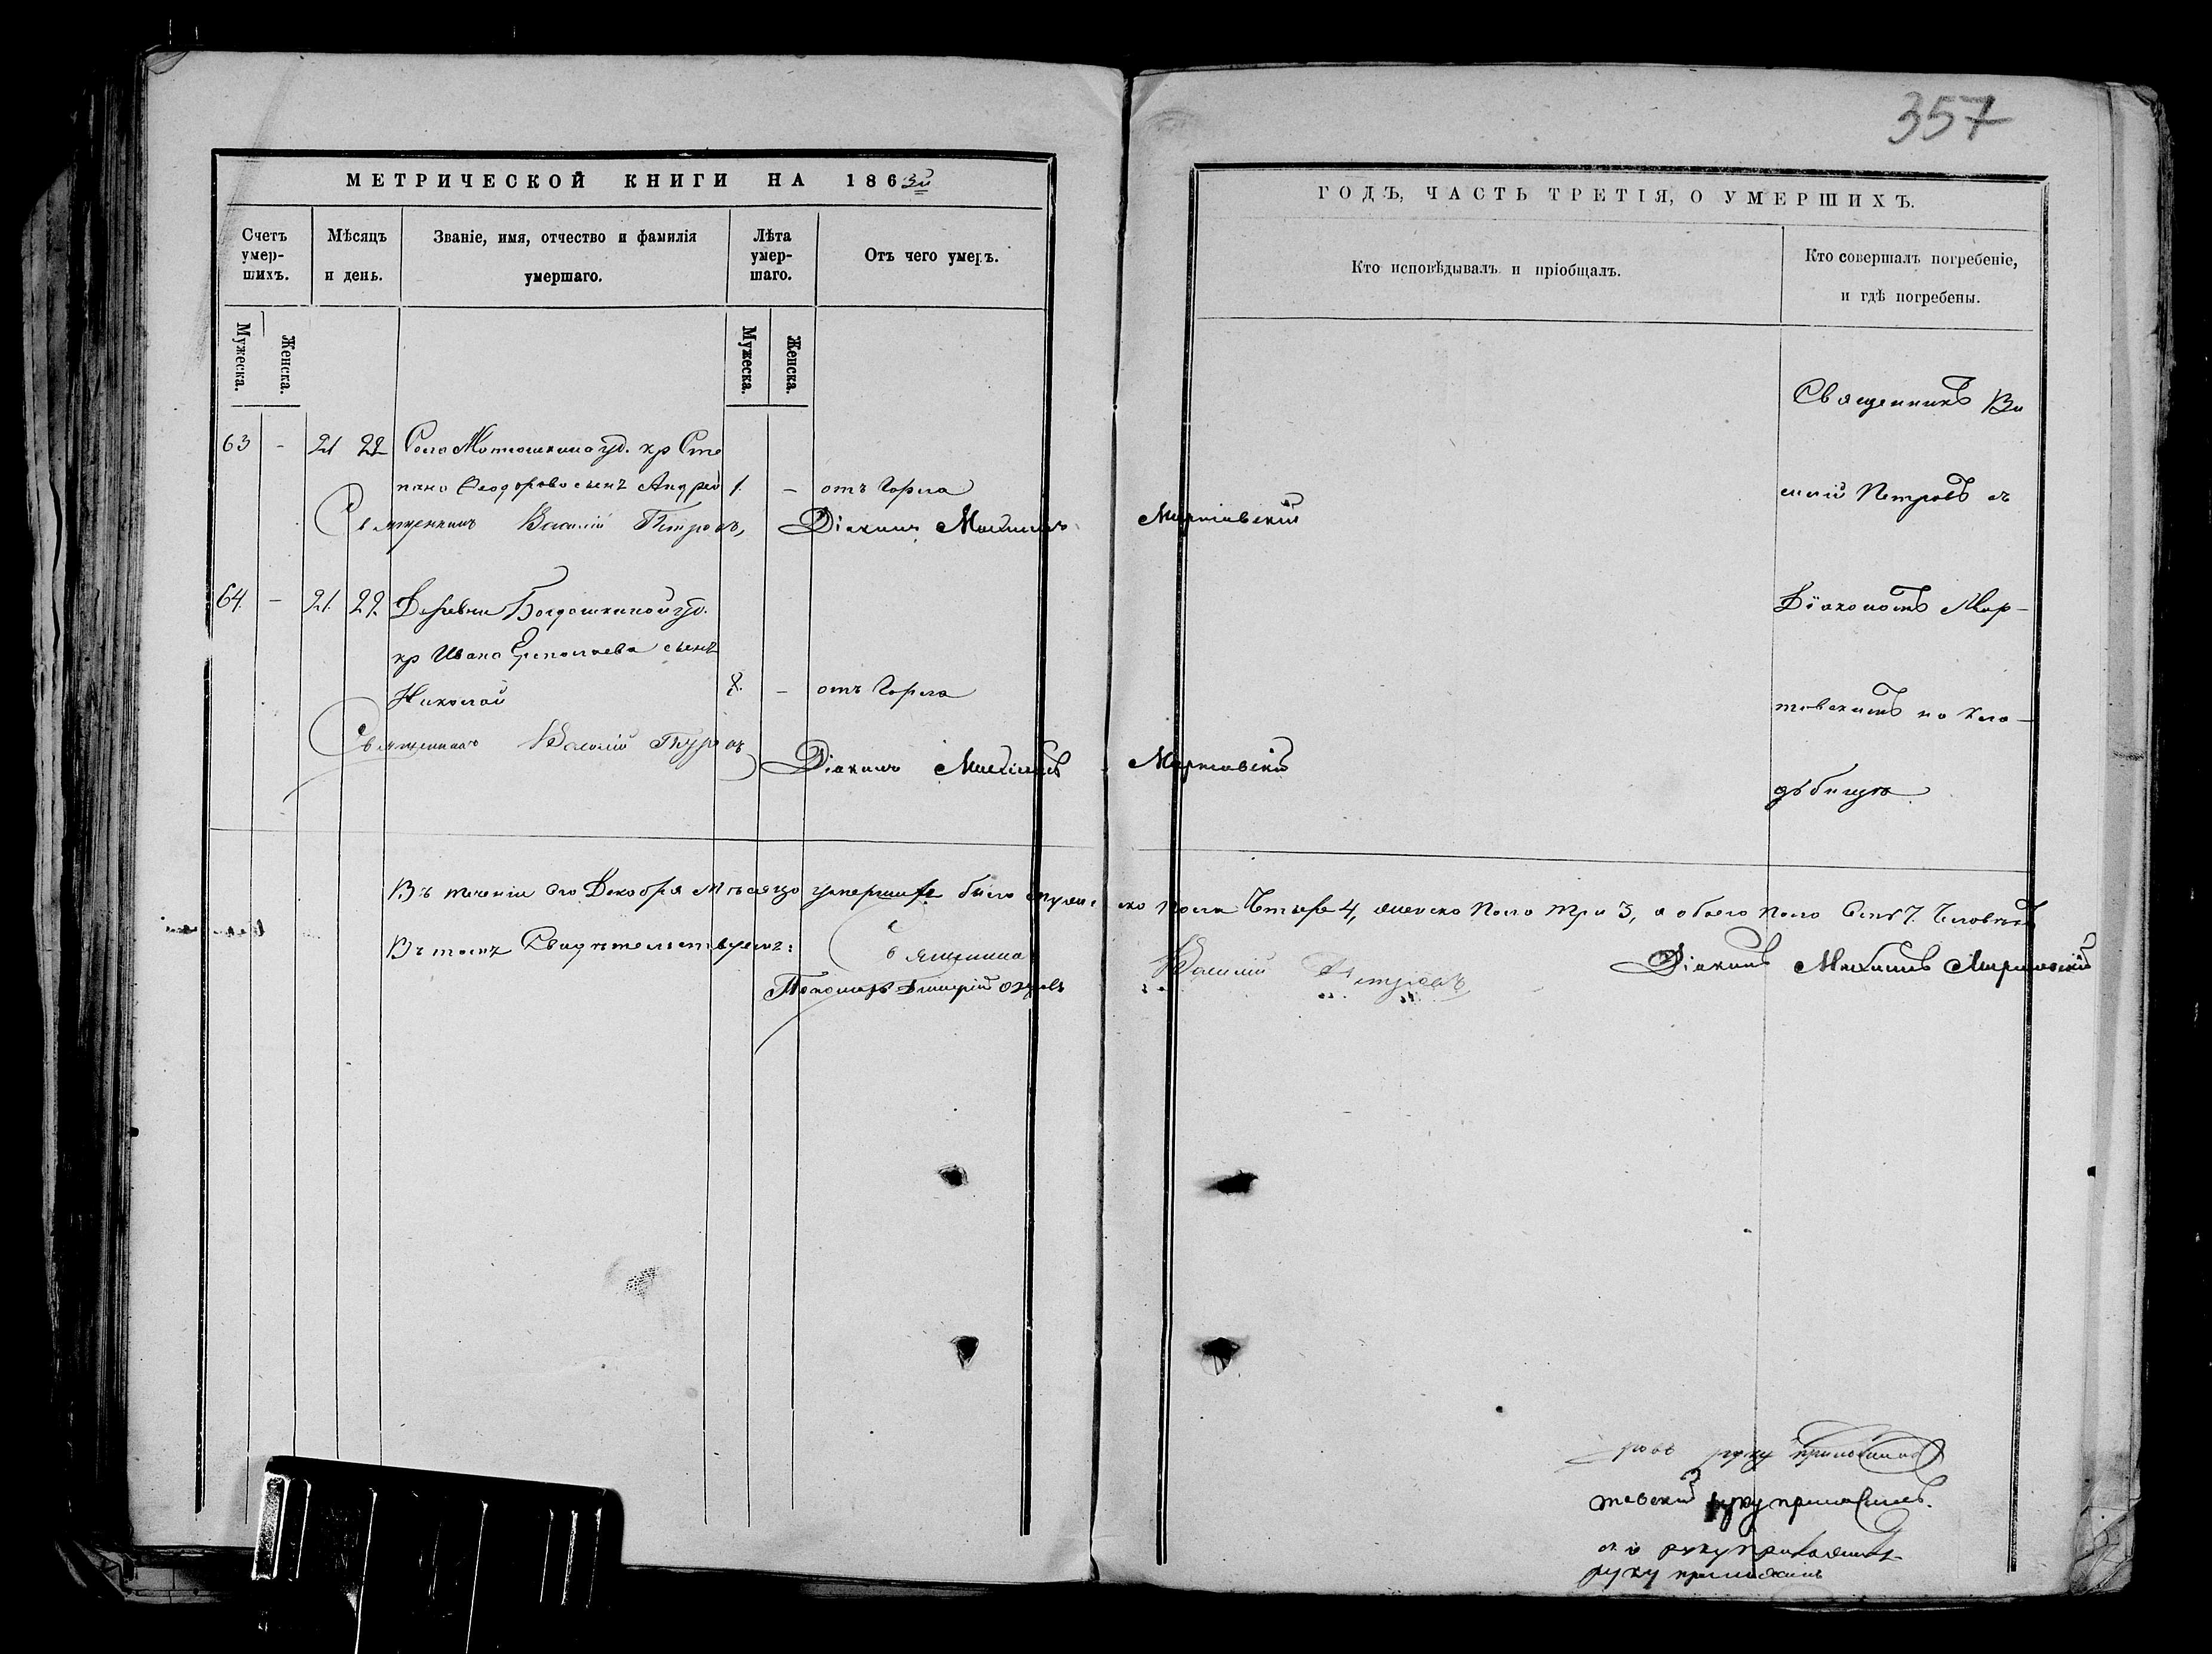 357
МЕТРИЧЕСКОЙ КНИГИ НА 1863й
ГОДЪ, ЧАСТЬ ТРЕТІЯ, О УМЕРШИХЪ.
Счетъ умершихъ.
Мѣсяцъ и день.
Званіе, имя, отчество и фамилія умершаго.
Лѣта умершаго.
Отъ чего умеръ.
Кто исповѣдывалъ и пріобщалъ.
Кто совершалъ погребеніе, и гдѣ погребены.
Мужеска.
Женска.
Мужеска.
Женска.
63 - 21 22 Села Матюшкина уд. кр Сте
пана Ѳеодорова сынъ Андрей 1. - отъ Горла
Священникъ Василій Петровъ, Діаконъ Мартовскій
64 - 21. 22. Деревни Богдашкиной уд.
кр Ивана Ермолаева сынъ
Николай - отъ Горла
Священникъ Василій Петровъ
Діаконъ Мартовскій
Священникъ Ва
силій Петровъ съ
Діакономъ Мар-
товскимъ на кла-
дбищѣ
Въ теченіи сго Декабря мѣсяца умершихъ было мужеска пола Четыре 4, женска пола три 3, а обоего пола Семь 7. Человѣкъ
Въ томъ Свидѣтельствуемъ: Священникъ Василій Петровъ Діаконъ Мартовскій
Пономарь Дмитрій
ровъ руку приложилъ
товскій руку приложилъ.
руку приложилъ
руку приложилъ